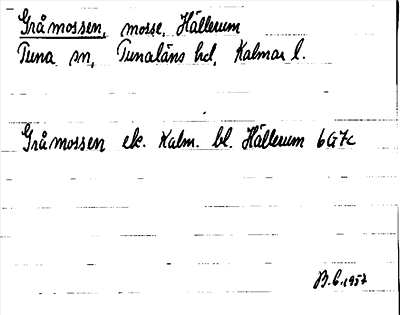 Gråmossen, mosse, Hällerum
Tuna sn, Tunaläns hd, Kalmar l.
Gråmossen ek. Kalm. bl. Hällerum 6G7c
B.C. 1957